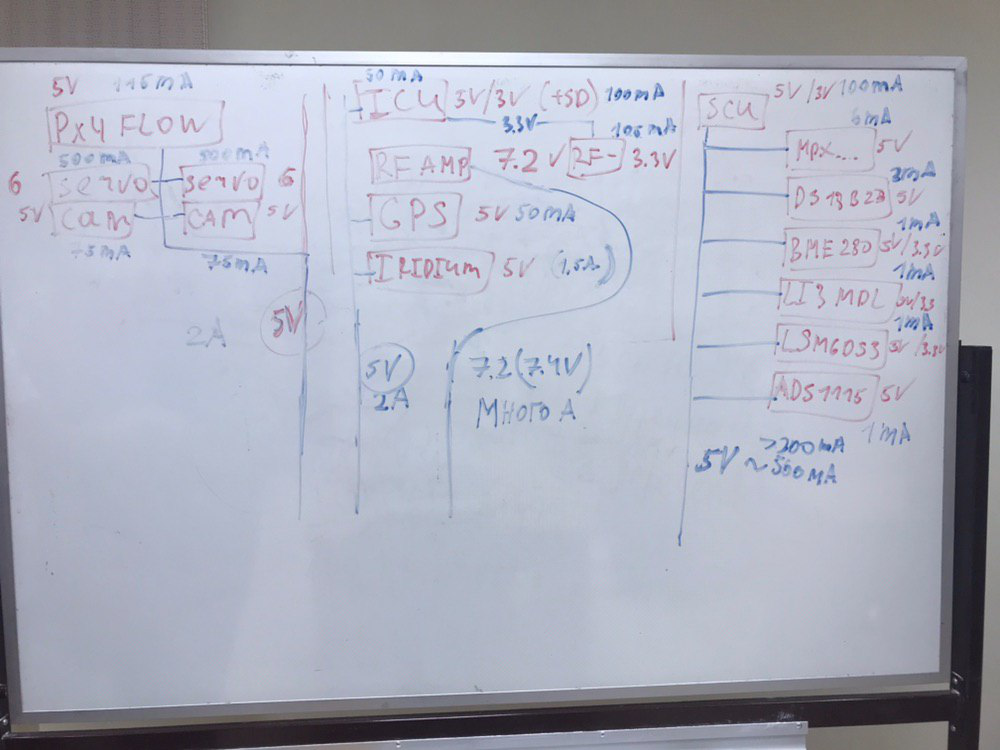 5V 115mA
PX4 FLOW
500mA 500mA
6 servo servo 6
5V CAM CAM 5V
75mA 75mA
2A 5V
50mA
ICU 5V/3V (+SD) 100mA
3.3V 105mA
RF AMP 7.2 V RF- 3.3V
GPS 5V 50mA
IRIDIUM 5V (1,5A)
5V
2A
7.2(7.4V)
МНОГО А
SCU 5V/3V 100mA
6mA
MPX... 5V
DS18B20 5V
1mA
BME280 5V/3.3V
1mA
LI3MDL
1mA
LSM6DS3 5V/3.3V
ADS1115 5V
1mA
>200mA
5V ~500mA